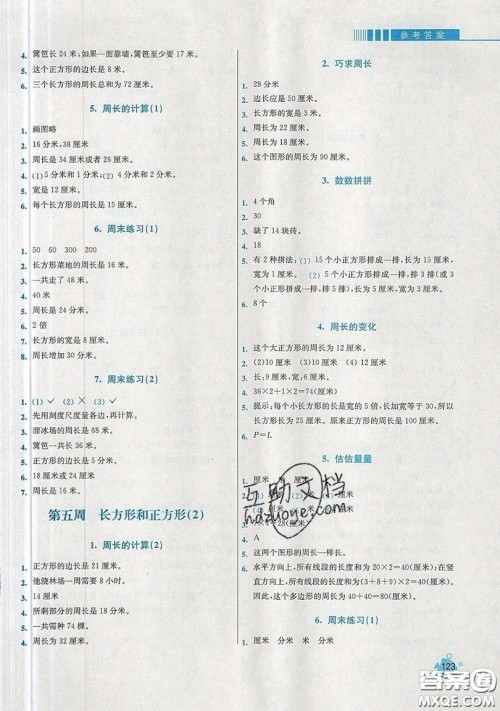 参考答案
4. 篱笆长 24 米;如果一面靠墙,篱笆至少要 17 米。
5. 这个正方形的边长是 8 米。
6. 三个长方形的周长总和为 72 厘米。
5. 周长的计算(1)
1. 画图略
2. 16 分米,38 厘米
3. 周长是 34 厘米或者 26 厘米。
4. (1) 5 分米和 1 分米; (2) 4 分米和 2 分米。
5. 宽是 12 厘米。
6. 每个长方形的周长是 15 厘米。
6. 周末练习(1)
1. 50 60 300 200
2. 长方形菜地的周长是 16 米。
3. 一共走了 48 米。
4. 40 米
5. 周长是 24 厘米。
6. 2 倍
7. 长方形的宽是 8 厘米。
8. 周长增加 30 分米。
7. 周末练习(2)
1. (1) ✓ (2) × (3) ✓
2. 先用刻度尺度量各边,再计算。
3. 溜冰场的周长是 68 米。
4. 篱笆一共长 36 米。
5. 正方形的边长是 5 分米。
6. 18 厘米或 24 厘米
7. 周长是 16 米。
第五周 长方形和正方形(2)
1. 周长的计算(2)
1. 正方形的边长是 21 厘米。
2. 他绕林场一周需要 8 小时。
3. 14 厘米
4. 所剩部分的周长是 18 厘米。
5. 一共需种 74 棵。
6. 周长为 32 厘米。
2. 巧求周长
1. 28 分米
2. 边长应是 50 厘米。
3. 长方形的宽是 3 米。
4. 周长为 22 厘米。
5. 周长为 18 厘米。
6. 这个图形的周长为 90 厘米。
3. 数数拼拼
1. 4 个角
2. 30
3. 缺了 14 块砖。
4. 18
5. 有 2 种拼法: (1) 15 个小正方形排成一排,长为 15 厘米,
宽为 1 厘米。 (2) 5 个小正方形排成一排,排 3 排(或 3
个小正方形一排,排 5 排),长为 5 厘米,宽为 3 厘米。
6. 8 个
4. 周长的变化
1. 这个大正方形的周长为 12 厘米。
2. (2)10 厘米 (3)10 厘米 (4) 12 厘米
3. 长:9 厘米,宽:6 厘米。
4. 36×2+1×2=74(厘米)
5. 提示:每个小长方形的长是宽的 5 倍,长加宽等于 30,所以
长方形长为 25 厘米。原来正方形的周长是 100 厘米。
6. P=L
5. 估估量量
4. A
5. 这两个图形的周长一样长。
6. 水平方向上,所有线段的长度和为 20×2=40(厘米);在竖
直方向上,所有线段的长度和为(3+8+9)×2=40(厘米)。
因此,这个多边形的周长为 40+40=80(厘米)。
6. 周末练习(1)
1. 厘米 分米 米 分米
123
互助文档
hazuoye.com
答案圈
MXQE.COM